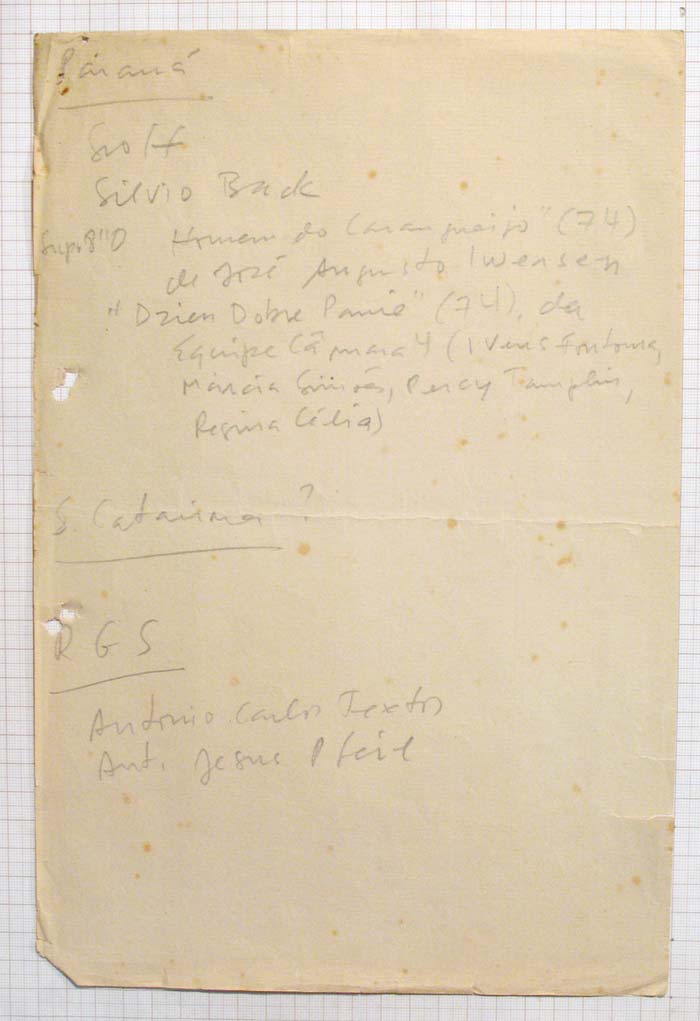 Paraná
Groff
Silvio Back
Super 8 "O Homem do Caranguejo" (74)
de José Augusto Iwersen
"Dzien Dobre Panie" (74), da
Equipe Câmara 4 (Ivens Fontoura,
Márcia Simões, Percy Tamplin,
Regina Célia)
S. Catarina ?
RGS
Antonio Carlos Textor
Ant. Jesus Pfeil